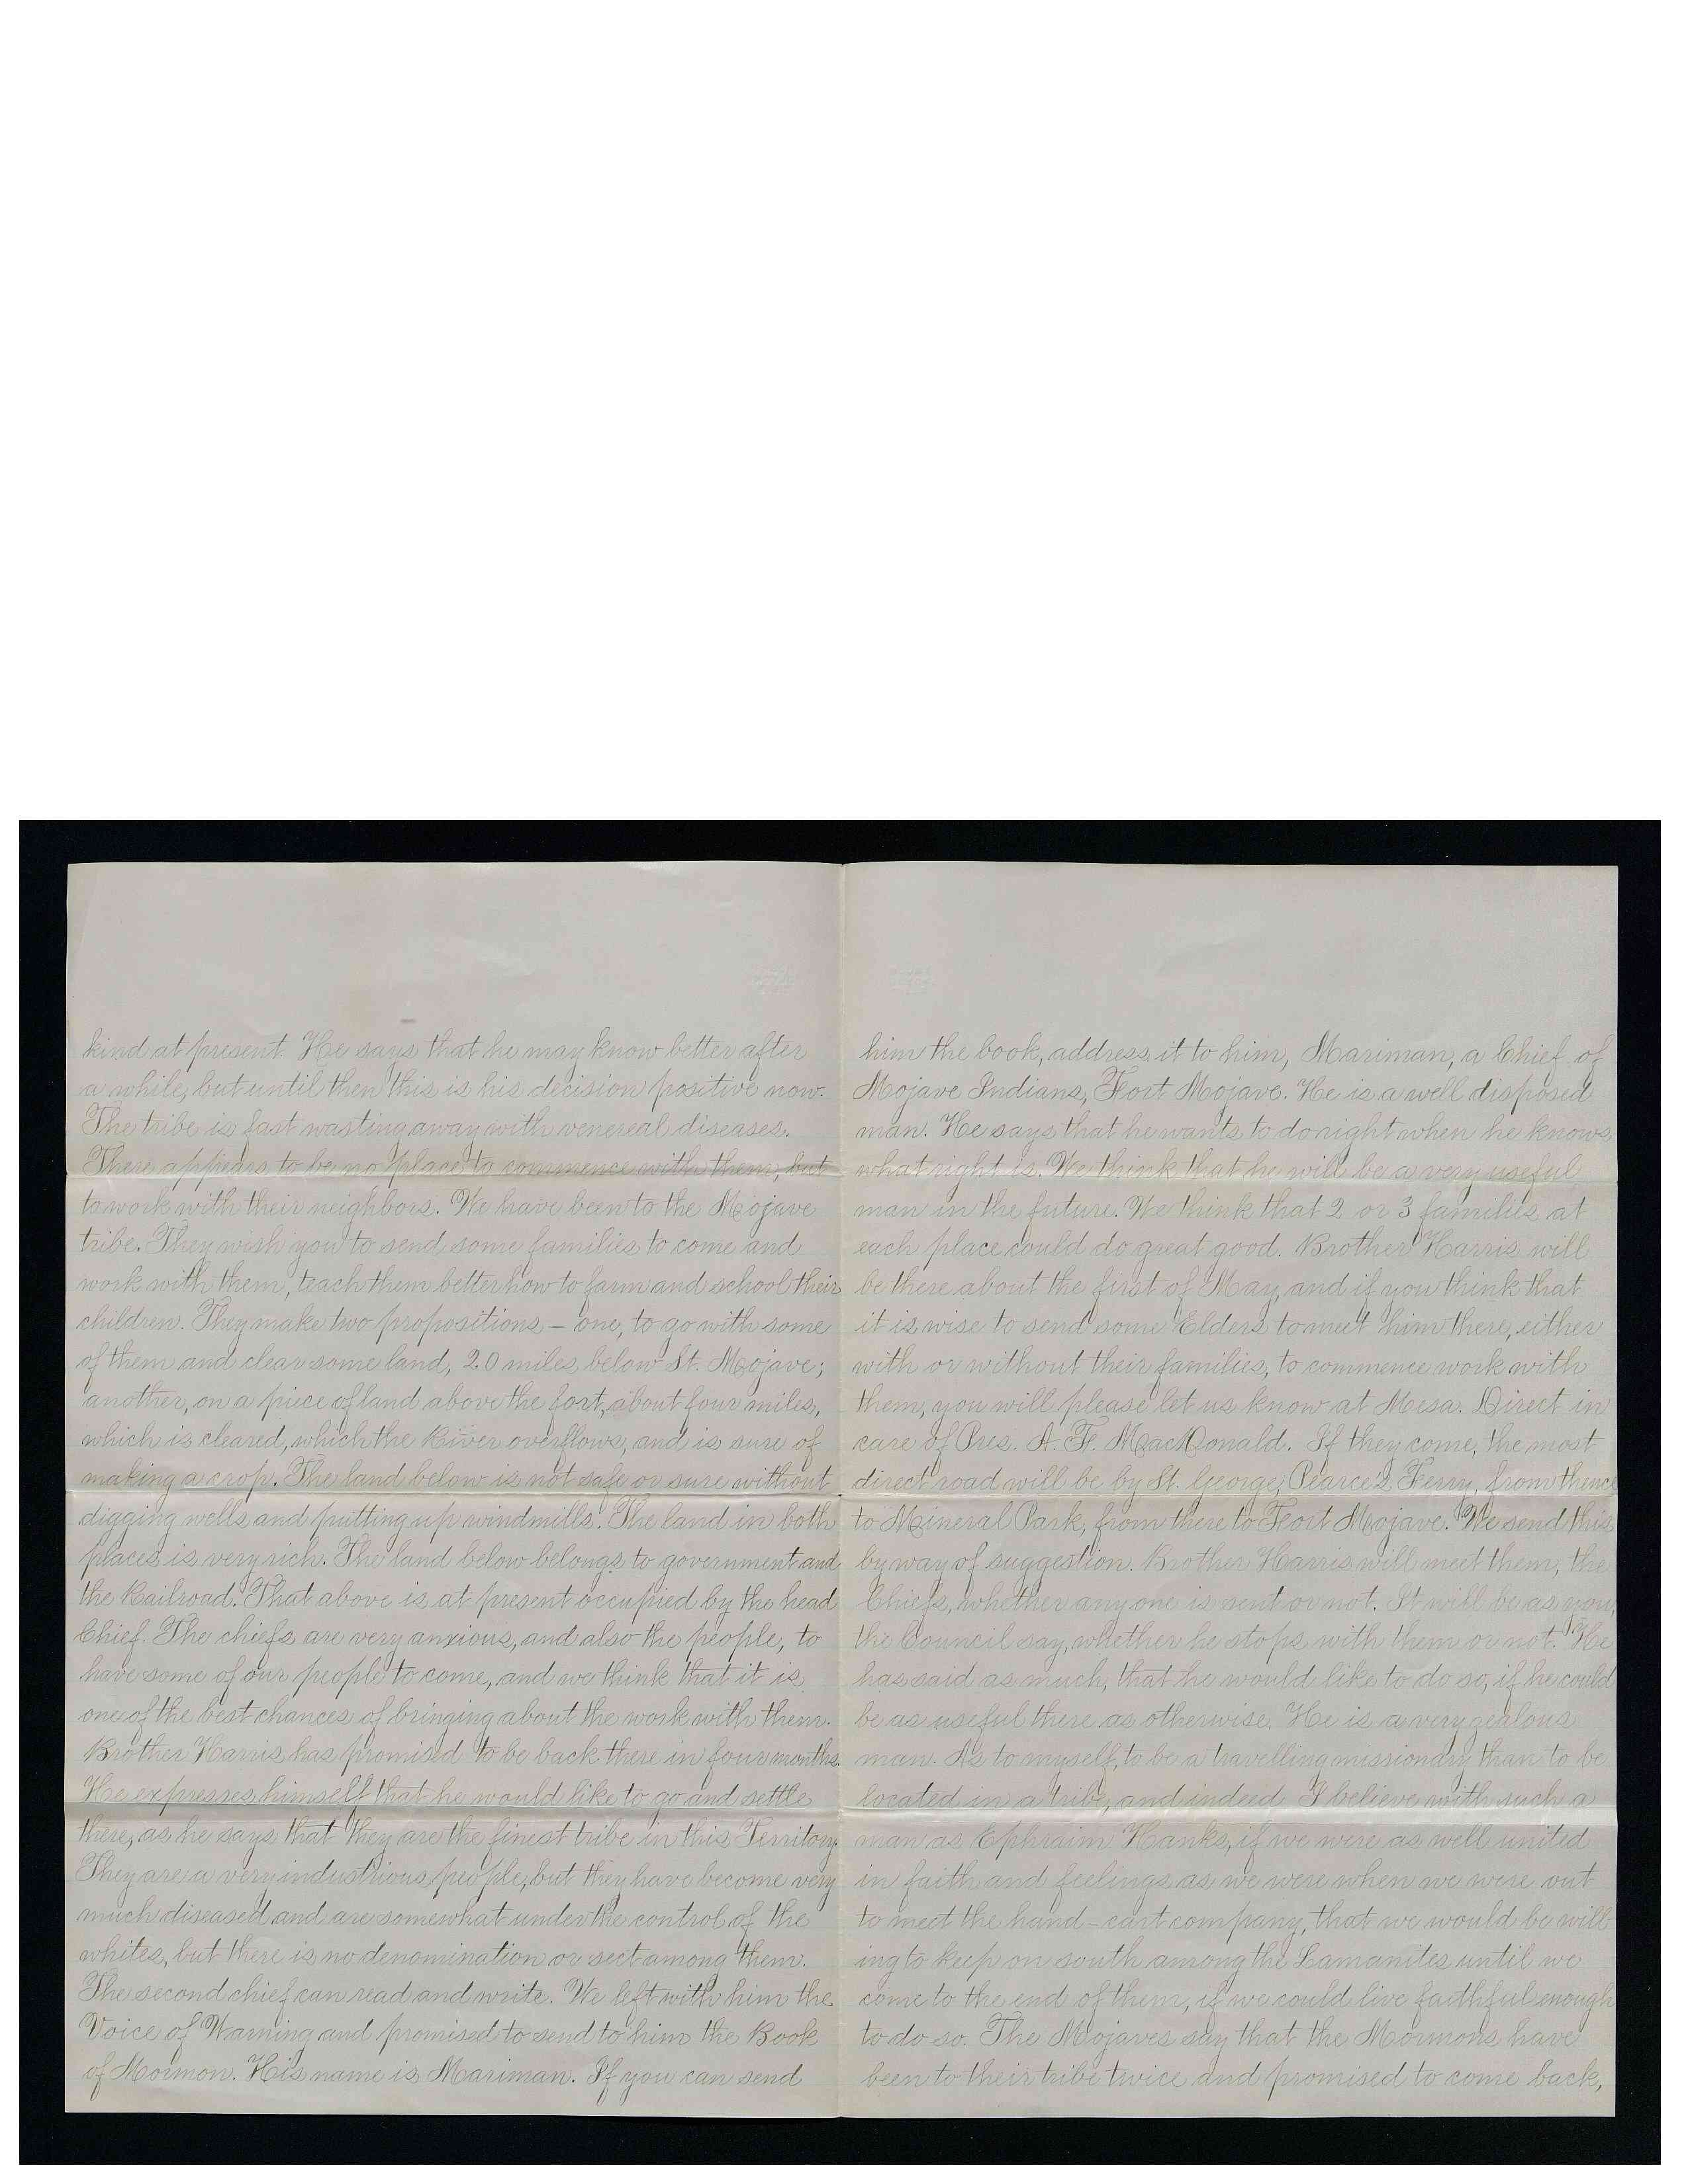 kind at present. He says that he may know better after
a while, but until then this is his decision positive now.
The tribe is fast wasting away with venereal diseases.
There appears to be no place to commence with them, but
to work with their neighbors. We have been to the Mojave
tribe. They wish you to send some families to come and
work with them, teach them better how to farm and school their
children. They make two propositions — one, to go with some
of them and clear some land, 20 miles below Ft. Mojave;
another, on a piece of land above the fort, about four miles,
which is cleared, which the River overflows, and is sure of
making a crop. The land below is not safe or sure without
digging wells and putting up windmills. The land in both
places is very rich. The land below belongs to government and
the Railroad. That above is at present occupied by the head
Chief. The chiefs are very anxious, and also the people, to
have some of our people to come, and we think that it is
one of the best chances of bringing about the work with them.
Brother Harris has promised to be back there in four months.
He expresses himself that he would like to go and settle
there, as he says that they are the finest tribe in this Territory.
They are a very industrious people, but they have become very
much diseased and are somewhat under the control of the
whites, but there is no denomination or sect among them.
The second chief can read and write. We left with him the
Voice of Warning and promised to send to him the Book
of Mormon. His name is Mariman. If you can send
him the book, address it to him, Mariman, a Chief of
Mojave Indians, Fort Mojave. He is a well disposed
man. He says that he wants to do right when he knows
what right is. We think that he will be a very useful
man in the future. We think that 2 or 3 families at
each place could do great good. Brother Harris will
be there about the first of May, and if you think that
it is wise to send some Elders to meet him there, either
with or without their families, to commence work with
them, you will please let us know at Mesa. Direct in
care of Pres. A. F. MacDonald. If they come, the most
direct road will be by St. George, Pearce's Ferry, from thence
to Mineral Park, from there to Fort Mojave. We send this
by way of suggestion. Brother Harris will meet them, the
Chiefs, whether any one is sent or not. It will be as you,
the Council say, whether he stops with them or not. He
has said as much, that he would like to do so, if he could
be as useful there as otherwise. He is a very zealous
man. As to myself, to be a travelling missionary than to be
located in a tribe, and indeed I believe with such a
man as Ephraim Hanks, if we were as well united
in faith and feelings as we were when we were out
to meet the hand-cart company, that we would be will-
ing to keep on south among the Lamanites until we
come to the end of them, if we could live faithful enough
to do so. The Mojaves say that the Mormons have
been to their tribe twice and promised to come back,